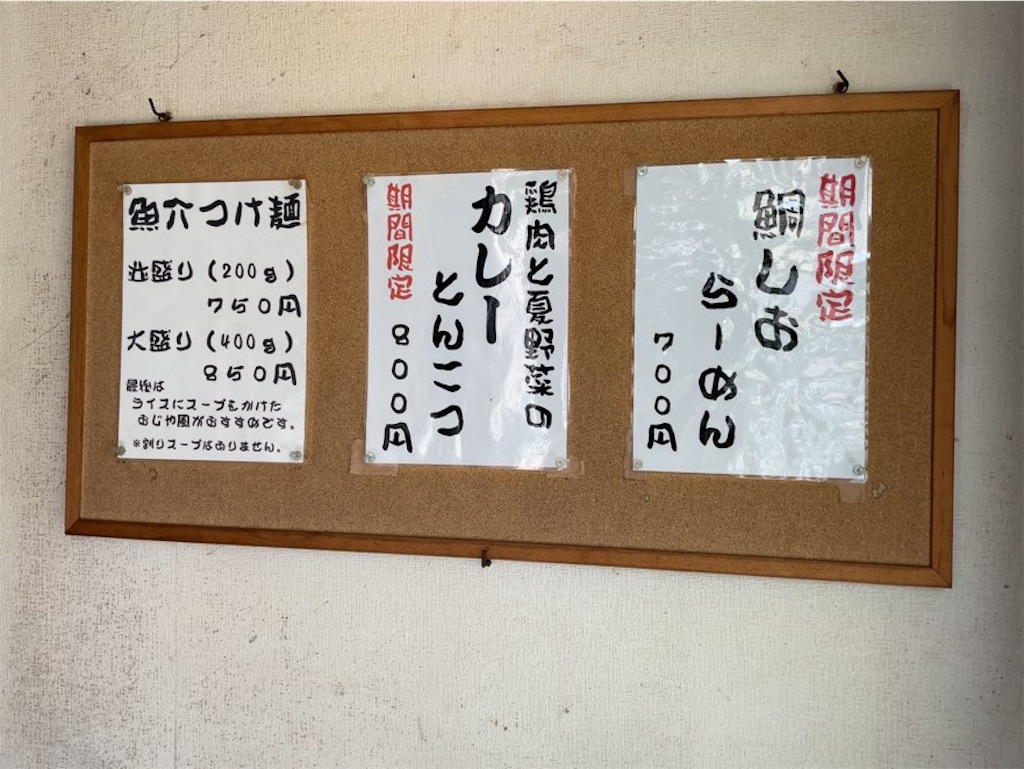 魚介つけ麺
並盛り（200g）
７５０円
大盛り（400g）
８５０円
最後は
ライスにスープをかけた
おじや風がおすすめです。
※割りスープはありません。
鶏肉と夏野菜の
カレー
とんこつ
期間限定
８００円
期間限定
鯛しお
らーめん
７００円